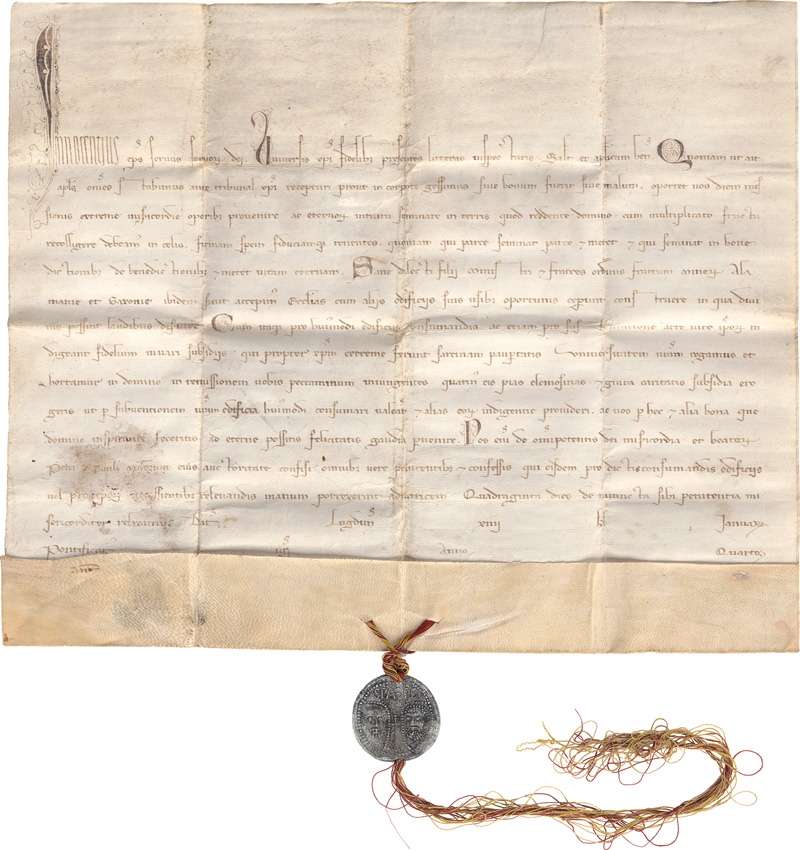 Innocentius ep̄s servus servoꝝ dei. Universis xp̄i fidelibꝫ presentes litteras inspecturis. Salt̄ et aplicam ben̄. Quoniam ut ait
apl̄s omēs stabimus ante tribunal xp̄i recepturi prout in corpore gessimus sive bonum fuerit sive malum. oportet nos diem mes
sionis extreme misericordie operibꝫ prevenire ac eternoꝝ intuitu seminare in terris quod reddente domino cum multiplicato fructu
recolligere debeam̄ in celis. firmam spem fiduciamqꝫ tenentes. quoniam qui parce seminat parce ⁊ metet ⁊ qui seminat in bene
dictionibꝫ de benedictionibꝫ ⁊ metet vitam eternam. Sane dilecti filii minist̄ri ⁊ fratres ordinis fratrum minoꝝ Ala
manie et Saxonie ibidem sicut accepim̄ Ecclias cum aliis edificiis suis usibꝫ oportunis ceperunt construere in qua divi
nis possint laudibus deservire. Cum igit̄ pro huiusmodi edificiis consumandis ac etiam pro sustentatione arte vite ipsoꝝ in
digeant fidelium iuvari subsidiis qui propter xp̄m extreme ferunt sarcinam paupertatis universitatem vr̄am rogamus et
hortamur in domino in remissionem vobis peccaminum iniungentes quatin̄ eis pias elemosinas ⁊ grata caritatis subsidia ero
getis ut p̱ subventionem vr̄am edificia huiusmodi consumari valeāt ⁊ alias eoꝝ indigentie provideri. ac vos p̱ hec ⁊ alia bona que
domino inspirante feceritis ad eterne possitis felicitatis gaudia p̱venire. Nos enī de omīpotentis dei misericordia et beatoꝝ
Petri ⁊ Pauli aplorum eius auctoritate confisi omnibꝫ vere penitentibꝫ ⁊ confessis qui eisdem pro dictis consumandis edificiis
vel pro ipsoꝝ necessitatibꝫ relevandis manum porrexerint adiutricem Quadraginta dies de iniuncta sibi penitentia mi
sericorditer relaxamus. Dat̄ Lugdun̄ xiiij kl̄ Januar̄
Pontificat̄ nr̄i Anno Quarto.